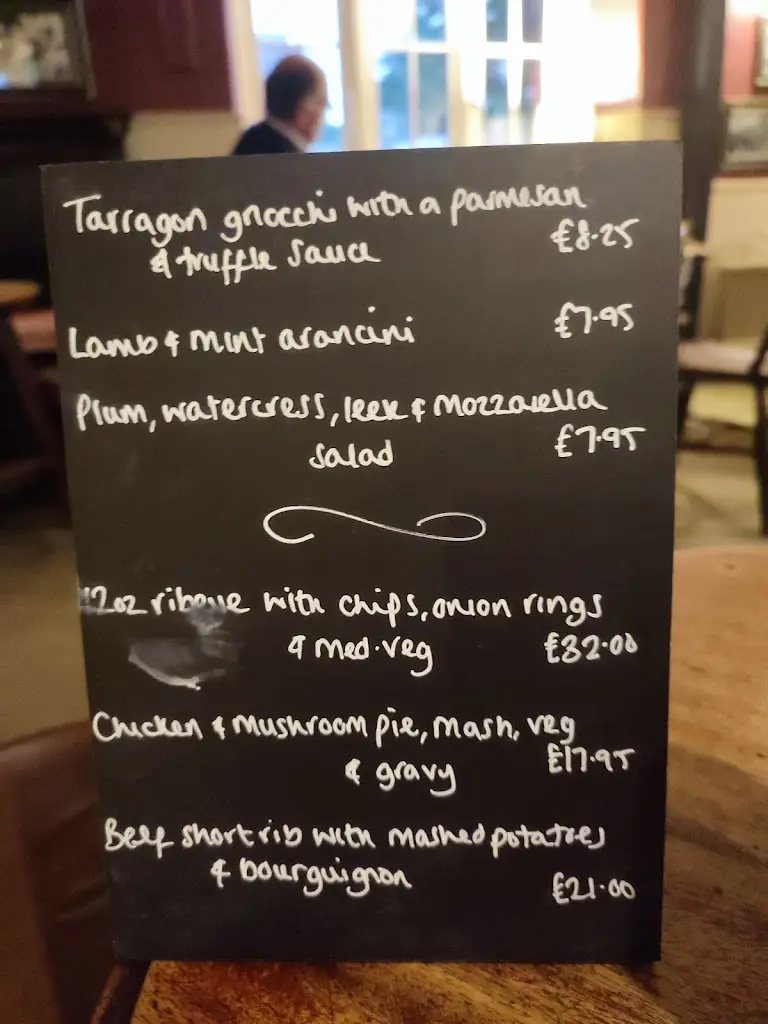 Tarragon gnocchi with a parmesan
& truffle sauce £8.25
Lamb & mint arancini £7.95
Plum, watercress, leek & mozzarella
salad £7.95
12oz ribeye with chips, onion rings
& med.veg £32.00
Chicken & mushroom pie, mash, veg
& gravy £17.95
Beef short rib with mashed potatoes
& bourguignon £21.00